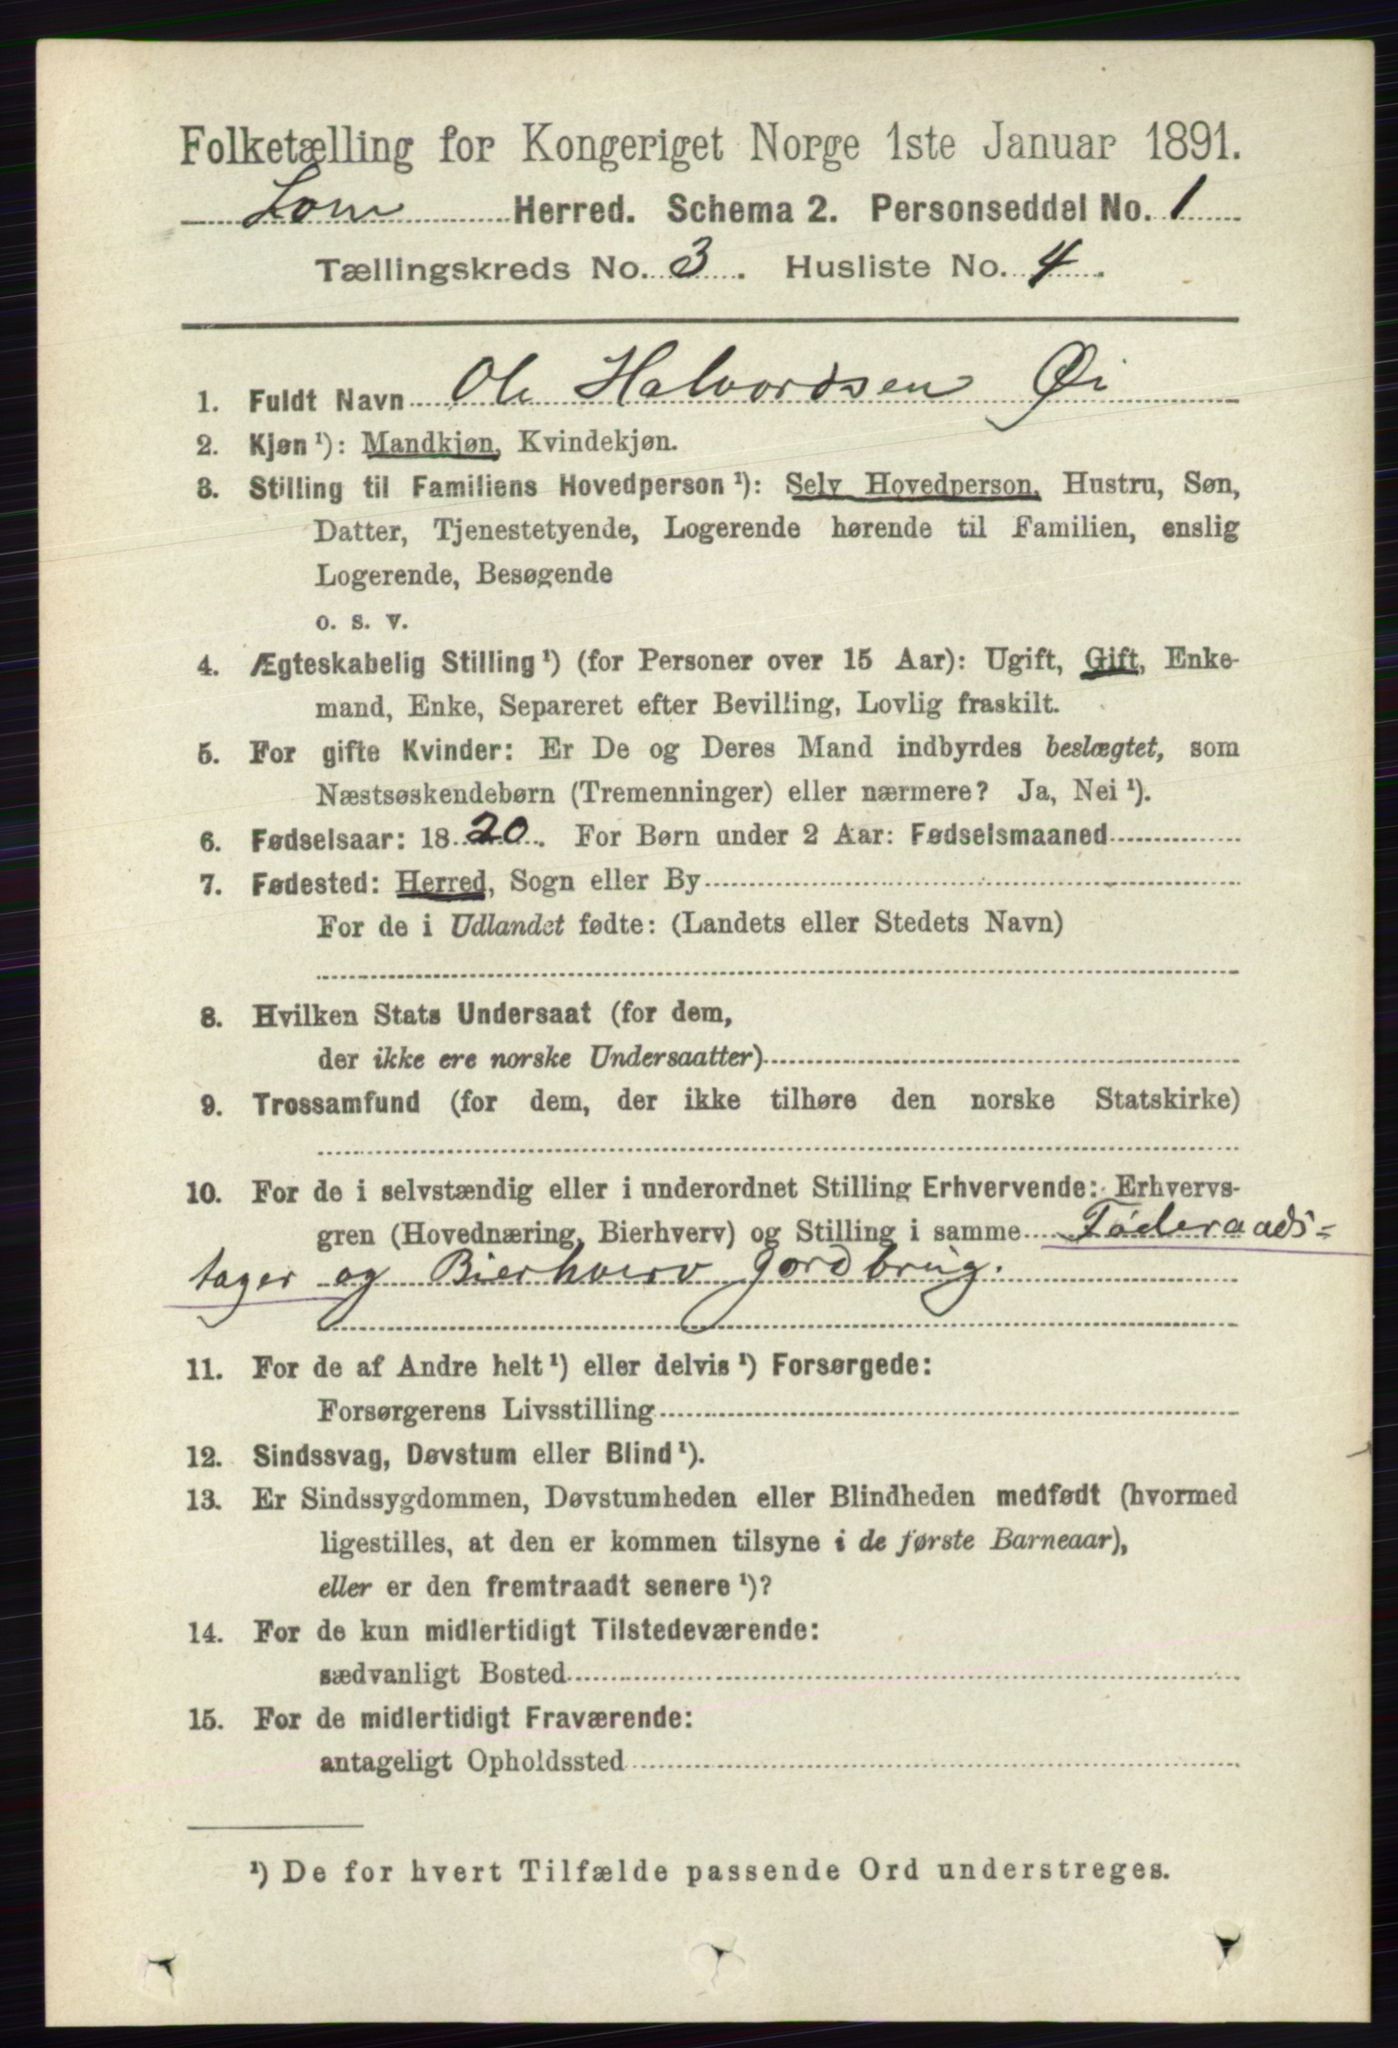 Folketælling for Kongeriget Norge 1ste Januar 1891.
Lom Herred. Schema 2. Personseddel No. 1
Tællingskreds No. 3. Husliste No. 4.
1. Fuldt Navn Ole Halvordsen Øi
2. Kjøn ¹): Mandkjøn, Kvindekjøn.
3. Stilling til Familiens Hovedperson ¹): Selv Hovedperson, Hustru, Søn,
Datter, Tjenestetyende, Logerende hørende til Familien, enslig
Logerende, Besøgende
o. s. v.
4. Ægteskabelig Stilling ¹) (for Personer over 15 Aar): Ugift, Gift, Enke-
mand, Enke, Separeret efter Bevilling, Lovlig fraskilt.
5. For gifte Kvinder: Er De og Deres Mand indbyrdes beslægtet, som
Næstsøskendebørn (Tremenninger) eller nærmere? Ja, Nei ¹).
6. Fødselsaar: 1820. For Børn under 2 Aar: Fødselsmaaned
7. Fødested: Herred, Sogn eller By
For de i Udlandet fødte: (Landets eller Stedets Navn)
8. Hvilken Stats Undersaat (for dem,
der ikke ere norske Undersaatter)
9. Trossamfund (for dem, der ikke tilhøre den norske Statskirke)
10. For de i selvstændig eller i underordnet Stilling Erhvervende: Erhvervs-
gren (Hovednæring, Bierhverv) og Stilling i samme Føderaads-
tager og Bierhverv Jordbrug.
11. For de af Andre helt ¹) eller delvis ¹) Forsørgede:
Forsørgerens Livsstilling
12. Sindssvag, Døvstum eller Blind ¹).
13. Er Sindssygdommen, Døvstumheden eller Blindheden medfødt (hvormed
ligestilles, at den er kommen tilsyne i de første Barneaar),
eller er den fremtraadt senere ¹)?
14. For de kun midlertidigt Tilstedeværende:
sædvanligt Bosted
15. For de midlertidigt Fraværende:
antageligt Opholdssted
¹) De for hvert Tilfælde passende Ord understreges.